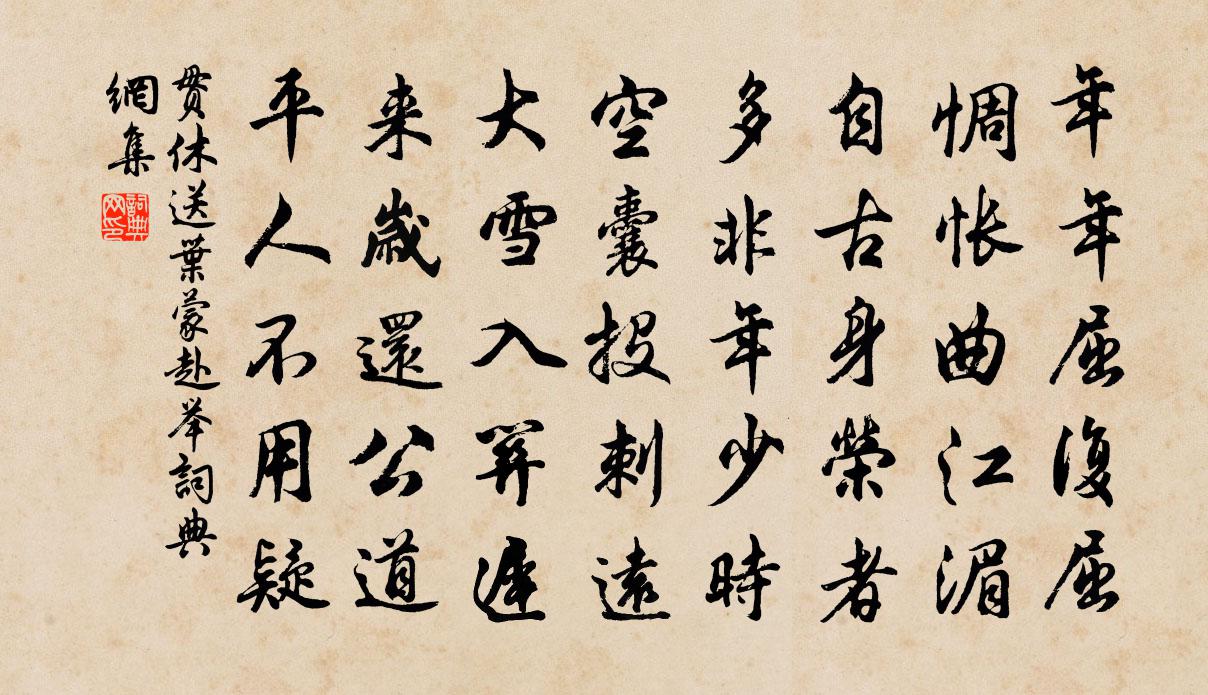 年年屈復屈
惆怅曲江湄
自古身榮者
多非年少時
空囊投刺遠
大雪入關遲
来歲還公道
平人不用疑
貫休送葉蒙赴举詞典
網集
詞典
网印